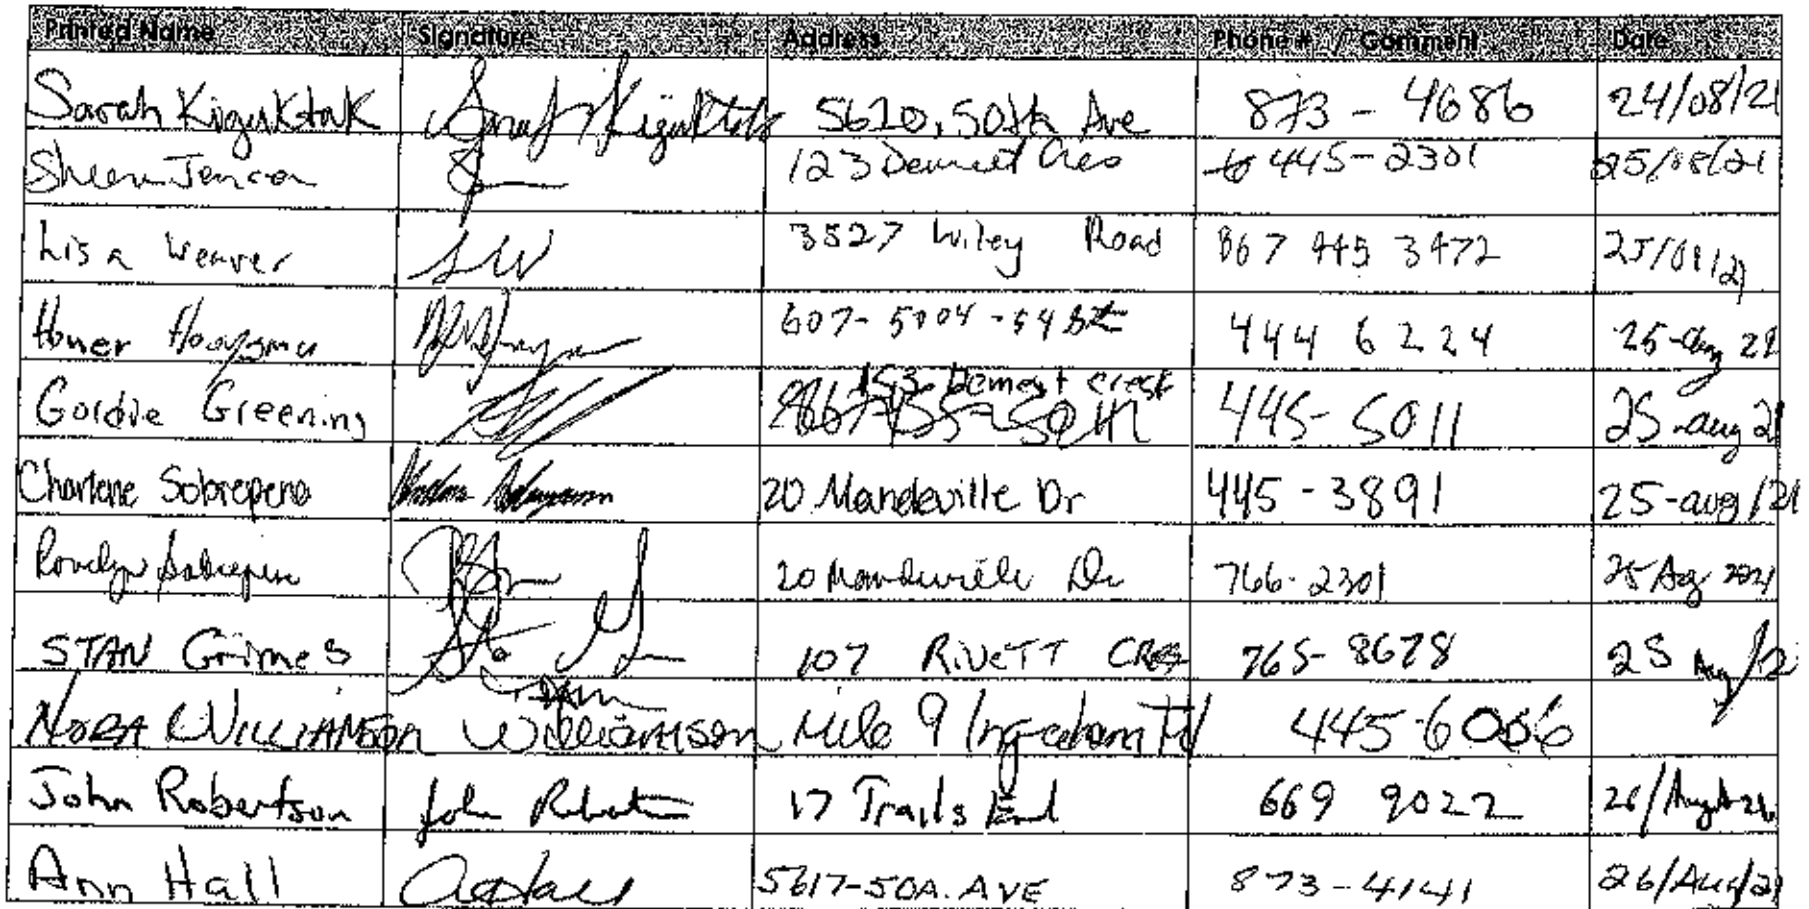 Printed Name Signature Address Phone # / Comment Date
Sarah 5620, 50th Ave 873-4686 24/08/21
123 Demelt Cres 445-2301 25/08/21
Lisa Weaver LW 3527 Wiley Road 867 445 3472 25/08/21
607-5004-54 St 444 6224 25-Aug 21
Gordie Greening 445-5011 25-aug 21
Charlene Sobrepena 20 Mandeville Dr 445-3891 25-aug/21
20 Mandeville Dr 766-2301 25 Aug 2021
STAN Grimes 107 RIVETT CRES 765-8678 25 Aug/21
NORA WILLIAMSON Williamson Mile 9 Ingraham Trl 445-6066
John Robertson John 17 Trails End 669 9022
Ann Hall 5617-50A. AVE 873-4141 26/Aug/21